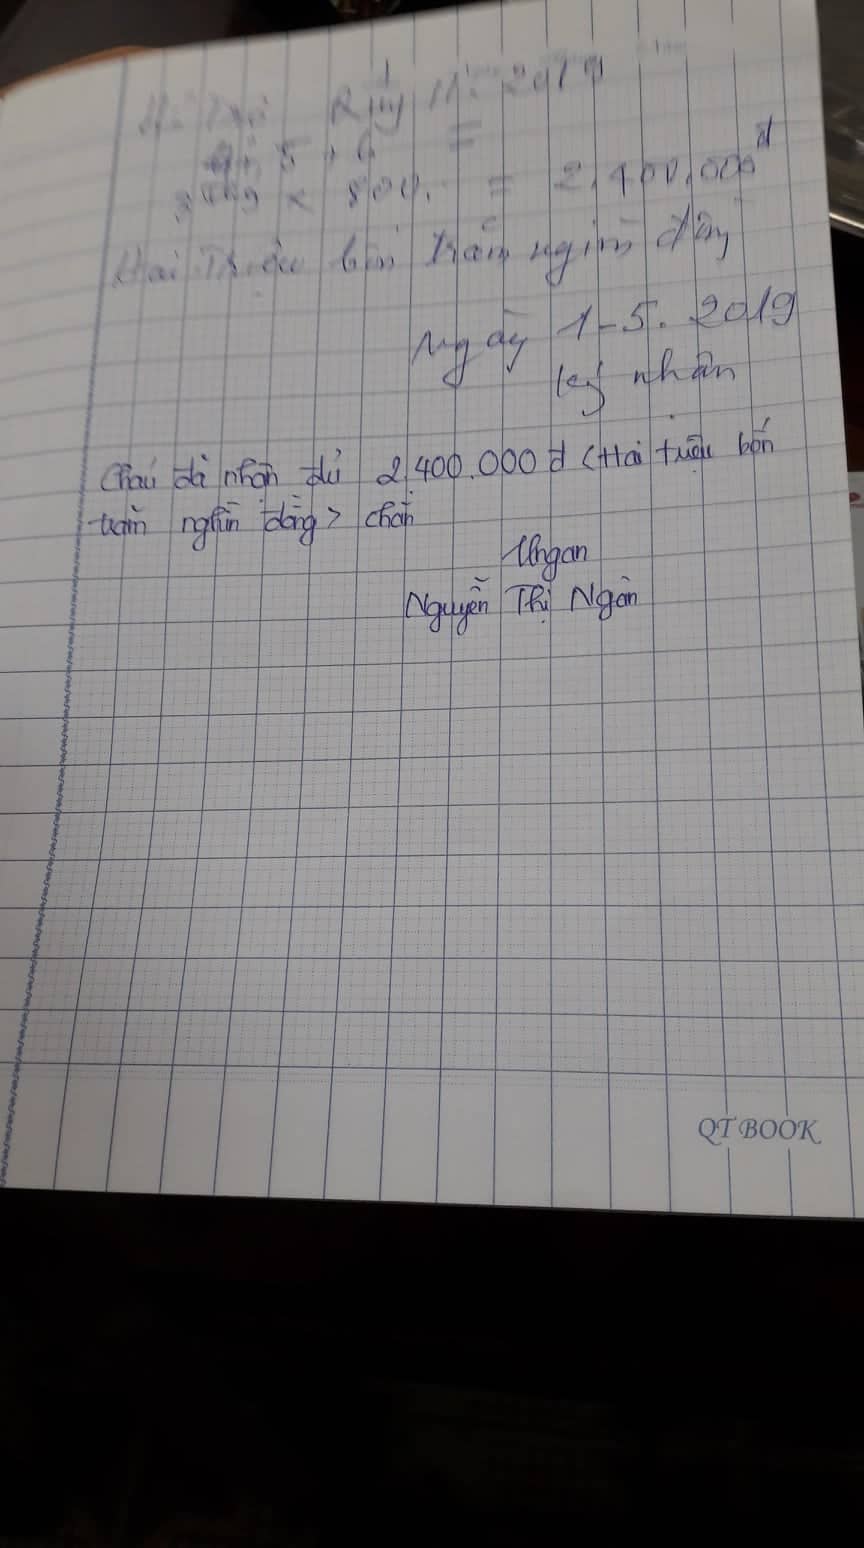 2019
4, 5, 6 =
x 800. = 2,400,000đ
Hai Triệu bốn trăm nghìn đồng
Ngày 1-5. 2019
ký nhận
Cháu đã nhận đủ 2,400.000đ (Hai triệu bốn
trăm nghìn đồng> chẵn
Ngan
Nguyễn Thị Ngân
QT BOOK